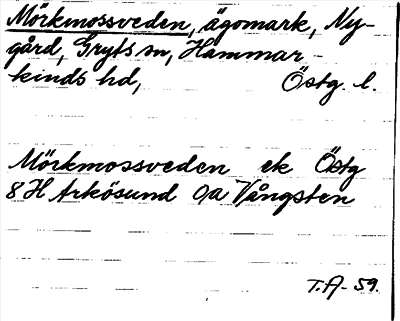 Mörkmossveden, ägomark, Ny-
gård, Gryts sn, Hammar-
kinds hd, Östg. l.
Mörkmossveden ek Östg
8H Arkösund 0a Vångsten
T.A-59.